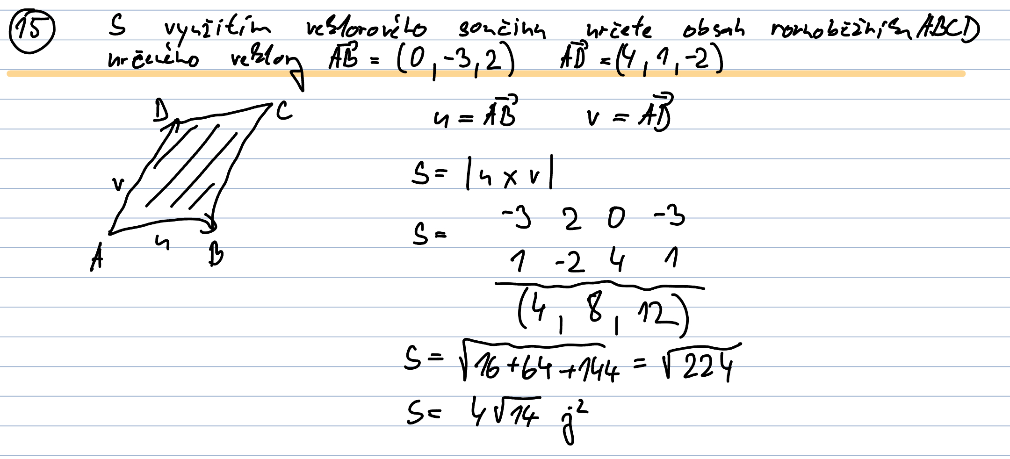 15 S využitím vektorového součinu určete obsah rovnoběžníku ABCD
určeného vektory AB = (0, -3, 2) AD = (4, 1, -2)
D C
u = AB v = AD
v
S = |u × v|
-3 2 0 -3
S =
A u B
1 -2 4 1
(4, 8, 12)
S = √16+64+144 = √224
S = 4√14 j²